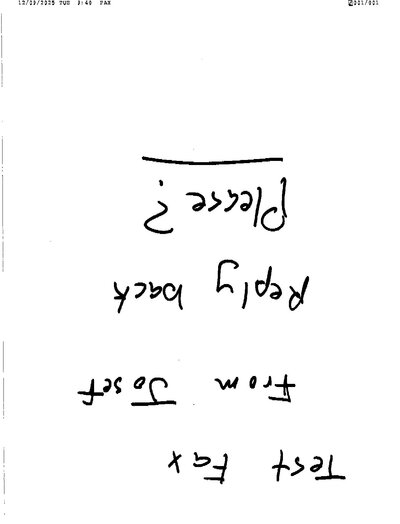 12/09/2025 TUE 9:40 FAX
001/001
Test Fax
From Josef
Reply back
Please?